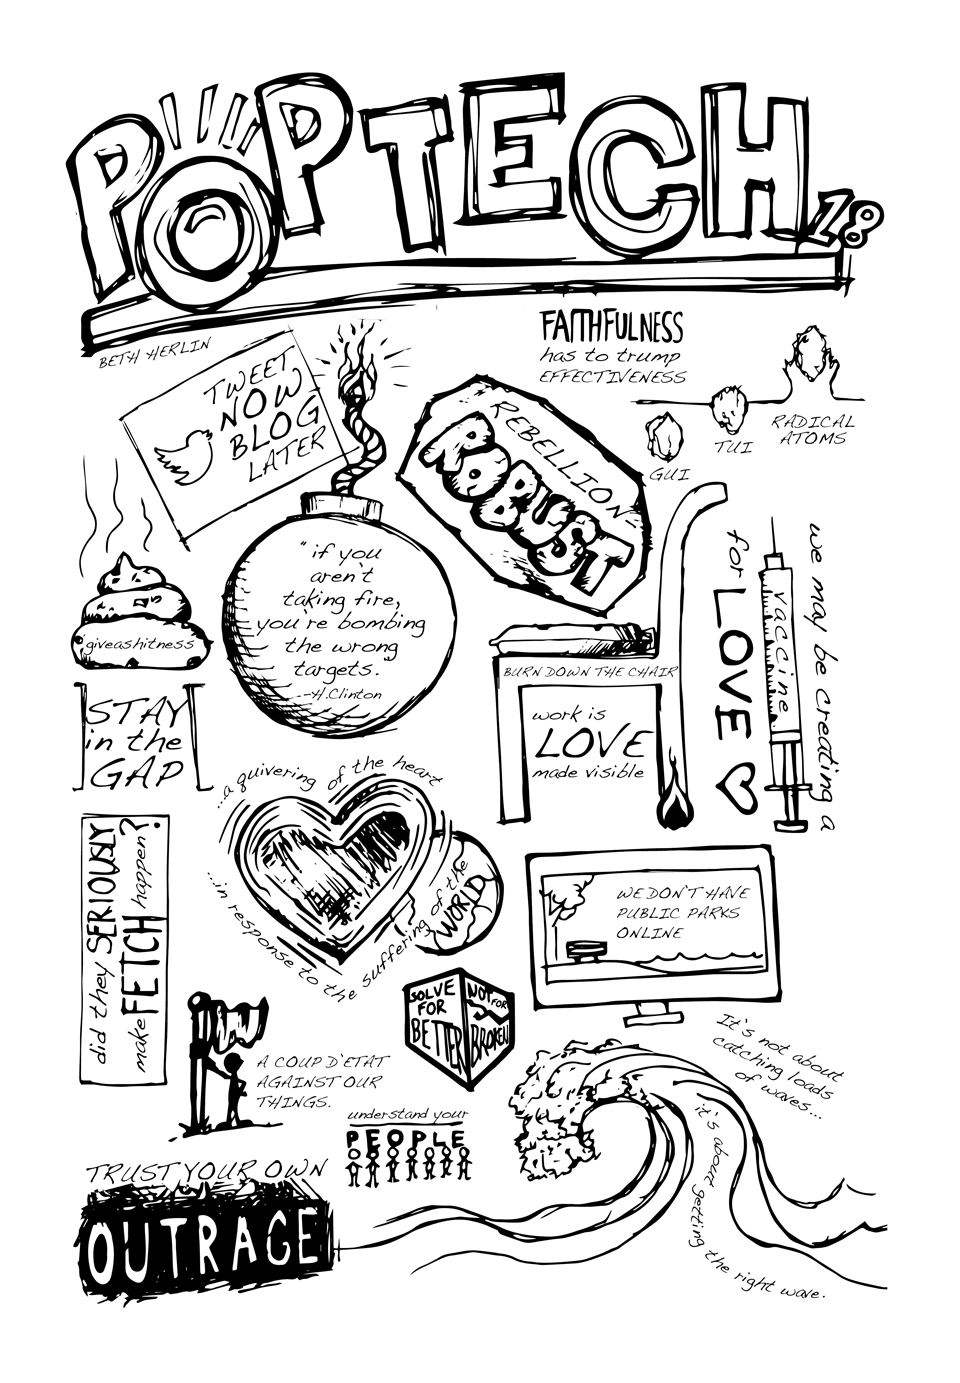 POPTECH 18
BETH HERLIN
TWEET
NOW
BLOG
LATER
FAITHFULNESS
has to trump
EFFECTIVENESS
GUI
TUI
RADICAL
ATOMS
"REBELLION"
ROBUST
"if you
aren't
taking fire,
you're bombing
the wrong
targets."
--H.Clinton
giveashitness
STAY
in the
GAP
BURN DOWN THE CHAIR
work is
LOVE
made visible
we may be creating a
vaccine
for LOVE
...a quivering of the heart
...in response to the suffering of the
WORLD
did they SERIOUSLY
make FETCH happen?
WE DON'T HAVE
PUBLIC PARKS
ONLINE
SOLVE
FOR
BETTER
NOT FOR
BROKEN
W
A COUP D'ETAT
AGAINST OUR
THINGS.
understand your
PEOPLE
It's not about
catching loads
of waves...
it's about getting the right wave.
TRUST YOUR OWN
OUTRAGE